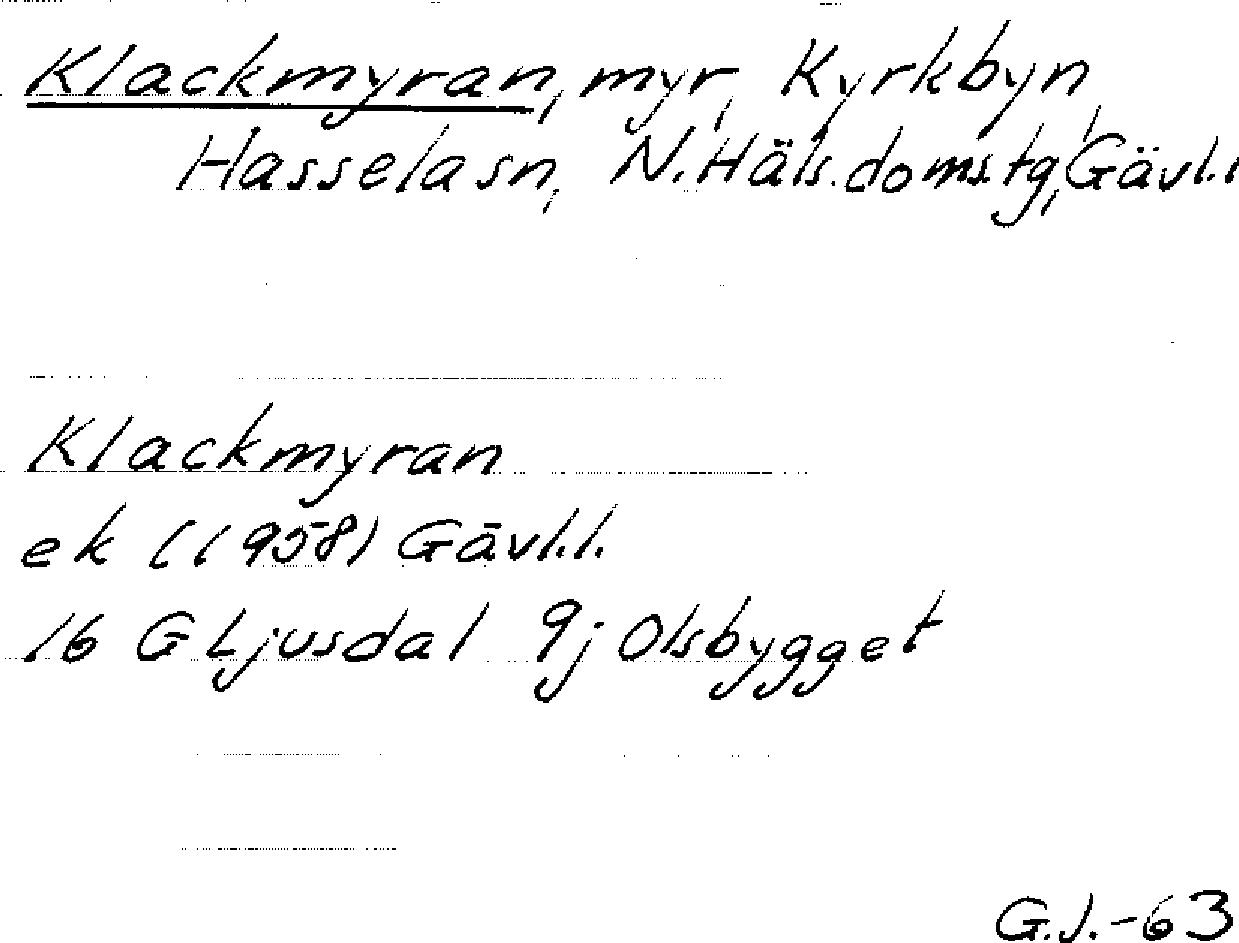 Klackmyran, myr, Kyrkbyn,
Hasselasn, N. Häls. doms.tg, Gävl.l
Klackmyran
ek (1958) Gävl.l.
16 G Ljusdal 9j Olsbygget
G.J.-63